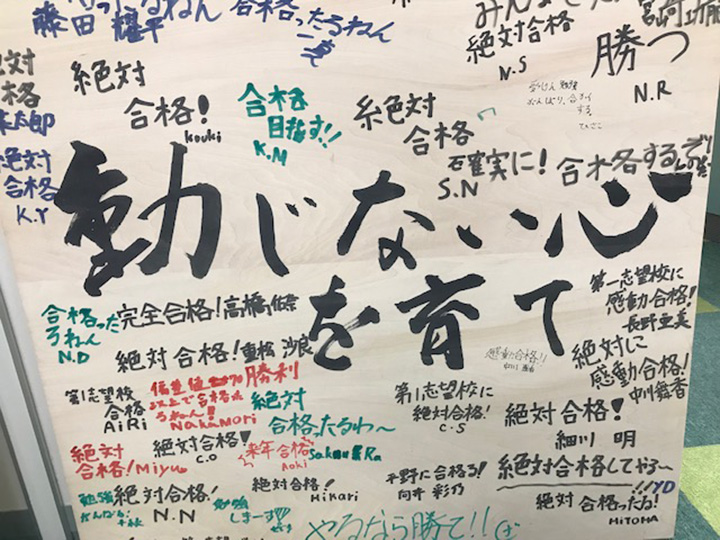 藤田 耀平
合格ったるねん
一真
絶対合格
N.S
勝つ
N.R
絶対
合格!
kouki
合格
目指す!!
K.M
絶対
合格
確実に!
S.N
合格するぞ!
絶対
合格
K.Y
動じない心
を育て
合格った
るねん
N.D
完全合格!高橋 健
絶対合格!重松 沙良
第1志望校
合格
AiRi
勝利
NaKaMori
絶対
合格ったるわ〜
Sakou Ra
絶対
合格!Miyu
絶対合格!
C.O
来年合格
Aoki
絶対合格!
Hikari
絶対合格!
N.N
勉強
しまーす
やるなら勝て!!
感動合格!!
第1志望校に
絶対合格!
C.S
平野に合格る!
向井 彩乃
第一志望校に
感動合格!
長野 亜美
絶対に
感動合格!
中川 舞香
絶対合格!
細川 明
絶対合格してやろ〜
!!YD
絶対 合格ったる!
MiTOMA